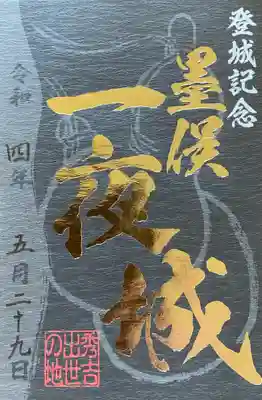 登城記念
墨俣
一夜城
令和 四年 五月二十九日
秀吉
出世
の地